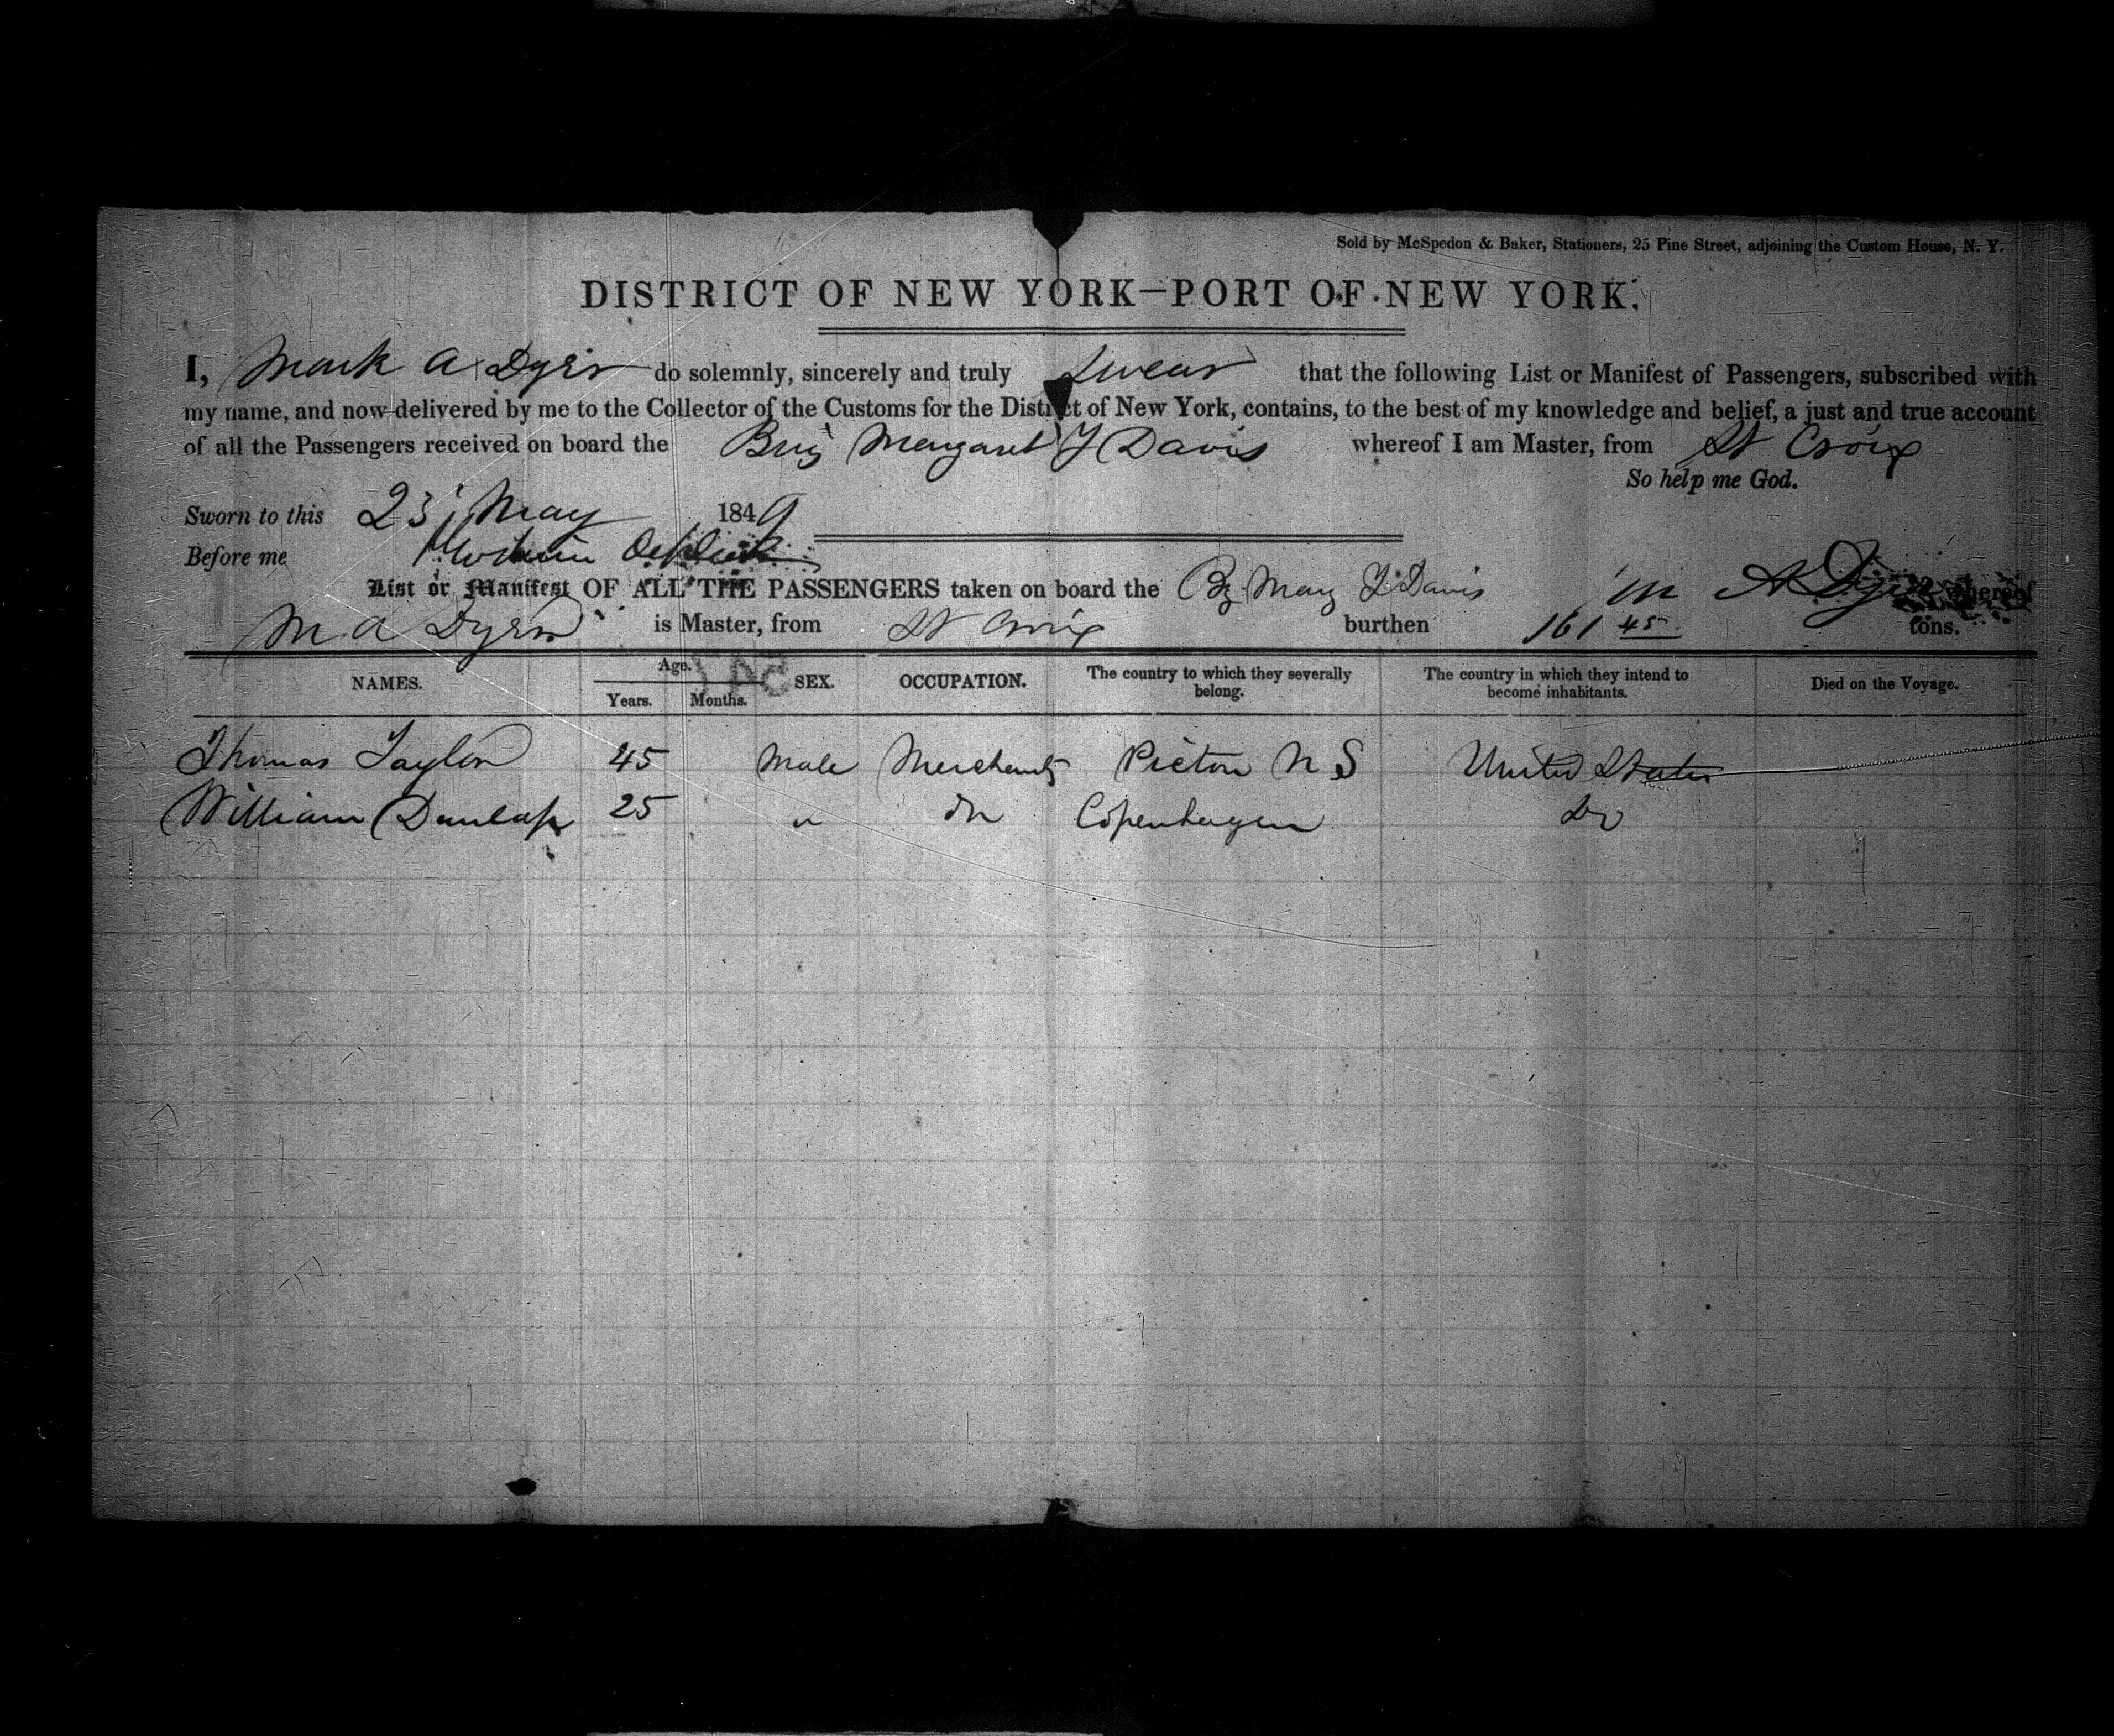 Sold by McSpedon & Baker, Stationers, 25 Pine Street, adjoining the Custom House, N. Y.
DISTRICT OF NEW YORK—PORT OF NEW YORK.
I, Mark A Dyer do solemnly, sincerely and truly Swear that the following List or Manifest of Passengers, subscribed with
my name, and now delivered by me to the Collector of the Customs for the District of New York, contains, to the best of my knowledge and belief, a just and true account
of all the Passengers received on board the Brig Margaret Y Davis whereof I am Master, from St Croix
So help me God.
Sworn to this 23 May 1849
Before me
List or Manifest OF ALL THE PASSENGERS taken on board the Bg Marg Y Davis M A Dyer whereof
M A Dyer is Master, from St Croix burthen 161 45 tons.
NAMES. Age. Years. Months. SEX. OCCUPATION. The country to which they severally belong. The country in which they intend to become inhabitants. Died on the Voyage.
Thomas Taylor 45 Male Merchant Pictou N S United States
William Dunlap 25 " Do Copenhagen Do